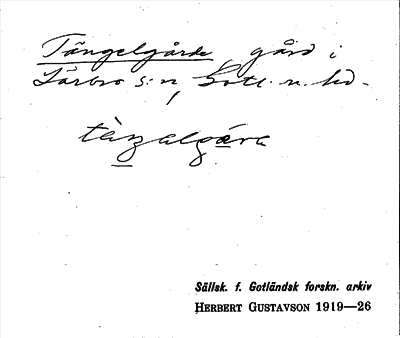 Tängelgårde, gård i
Lärbro s:n, Gotl. n. hd.
tàŋalgárda
Sällsk. f. Gotländsk forskn. arkiv
HERBERT GUSTAVSON 1919—26